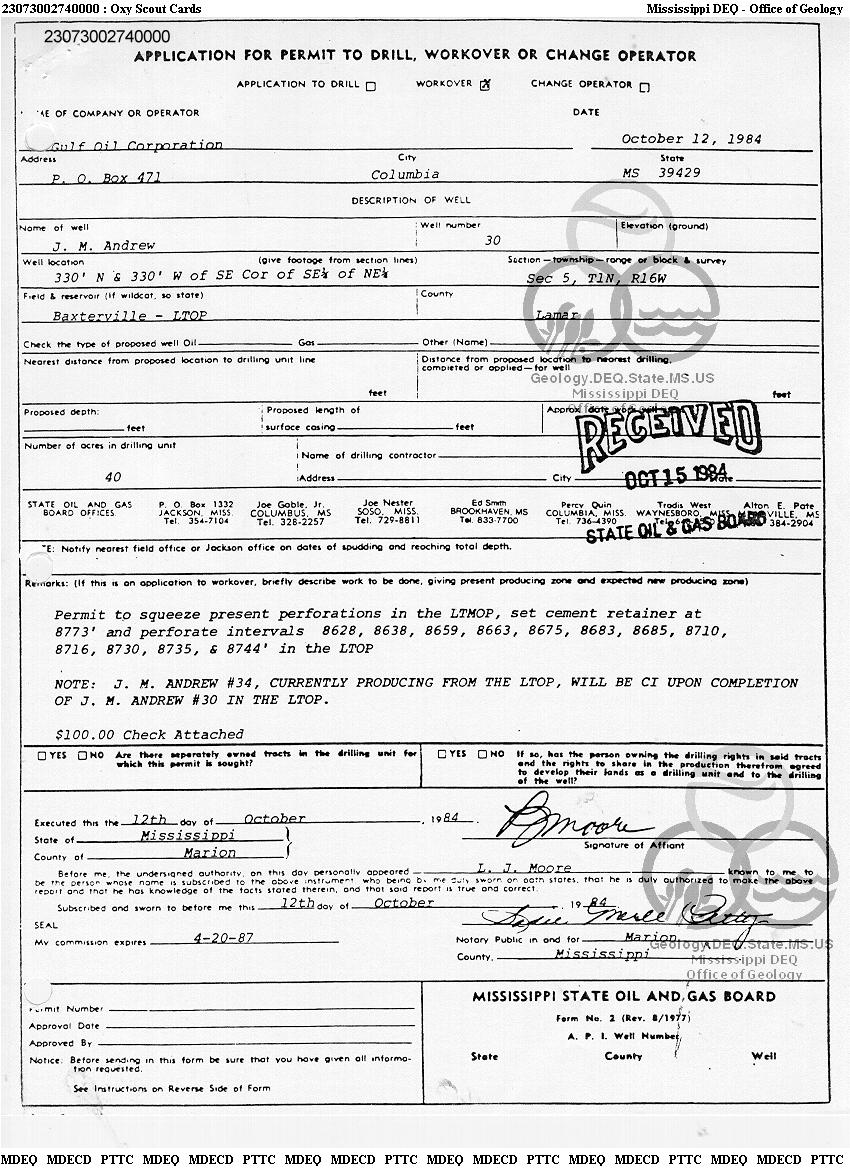 23073002740000 : Oxy Scout Cards Mississippi DEQ - Office of Geology
23073002740000
APPLICATION FOR PERMIT TO DRILL, WORKOVER OR CHANGE OPERATOR
APPLICATION TO DRILL ☐ WORKOVER ☒ CHANGE OPERATOR ☐
ME OF COMPANY OR OPERATOR DATE
Gulf Oil Corporation October 12, 1984
Address City State
P. O. Box 471 Columbia MS 39429
DESCRIPTION OF WELL
Name of well Well number Elevation (ground)
J. M. Andrew 30
Well location (give footage from section lines) Section—township—range or block & survey
330' N & 330' W of SE Cor of SE¼ of NE¼ Sec 5, T1N, R16W
Field & reservoir (If wildcat, so state) County
Baxterville - LTOP Lamar
Check the type of proposed well Oil Gas Other (Name)
Nearest distance from proposed location to drilling unit line Distance from proposed location to nearest drilling,
completed or applied—for well
Geology.DEQ.State.MS.US
Mississippi DEQ
feet feet
Proposed depth: Proposed length of Approx date work
feet surface casing feet
RECEIVED
Number of acres in drilling unit Name of drilling contractor
40 Address City
OCT 15 1984
STATE OIL AND GAS P. O. Box 1332 Joe Goble, Jr. Joe Nester Ed Smith Percy Quin Tradis West Alton E. Pate
BOARD OFFICES JACKSON, MISS. COLUMBUS, MS SOSO, MISS. BROOKHAVEN, MS COLUMBIA, MISS. WAYNESBORO, MISS VILLE, MS
Tel. 354-7104 Tel. 328-2257 Tel. 729-8811 Tel. 833-7700 Tel. 736-4390 Tel. 384-2904
STATE OIL & GAS BOARD
E: Notify nearest field office or Jackson office on dates of spudding and reaching total depth.
Remarks: (If this is an application to workover, briefly describe work to be done, giving present producing zone and expected new producing zone)
Permit to squeeze present perforations in the LTMOP, set cement retainer at
8773' and perforate intervals 8628, 8638, 8659, 8663, 8675, 8683, 8685, 8710,
8716, 8730, 8735, & 8744' in the LTOP
NOTE: J. M. ANDREW #34, CURRENTLY PRODUCING FROM THE LTOP, WILL BE CI UPON COMPLETION
OF J. M. ANDREW #30 IN THE LTOP.
$100.00 Check Attached
☐ YES ☐ NO Are there separately owned tracts in the drilling unit for
which this permit is sought?
☐ YES ☐ NO If so, has the person owning the drilling rights in said tracts
and the rights to share in the production therefrom agreed
to develop their lands as a drilling unit and to the drilling
of the well?
Executed this the 12th day of October , 1984 .
State of Mississippi
Signature of Affiant
County of Marion
Before me, the undersigned authority, on this day personally appeared L. J. Moore known to me to
be the person whose name is subscribed to the above instrument, who being by me duly sworn on oath states, that he is duly authorized to make the above
report and that he has knowledge of the facts stated therein, and that said report is true and correct.
Subscribed and sworn to before me this 12th day of October , 1984
SEAL
My commission expires 4-20-87
Notary Public in and for Marion
County, Mississippi
Geology.DEQ.State.MS.US
Mississippi DEQ
Office of Geology
Permit Number
Approval Date
Approved By
Notice: Before sending in this form be sure that you have given all informa-
tion requested.
See Instructions on Reverse Side of Form
MISSISSIPPI STATE OIL AND GAS BOARD
Form No. 2 (Rev. 8/1977)
A. P. I. Well Number
State County Well
MDEQ MDECD PTTC MDEQ MDECD PTTC MDEQ MDECD PTTC MDEQ MDECD PTTC MDEQ MDECD PTTC MDEQ MDECD PTTC